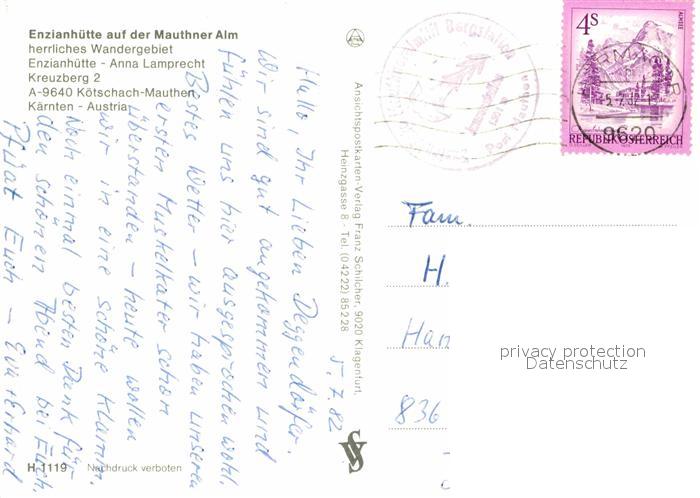 Enzianhütte auf der Mauthner Alm
herrliches Wandergebiet
Enzianhütte - Anna Lamprecht
Kreuzberg 2
A-9640 Kötschach-Mauthen
Kärnten - Austria
5.7.82
Hallo, Ihr Lieben Deggendorfer.
Wir sind gut angekommen und
fühlen uns hier ausgesprochen wohl.
Bestes Wetter – wir haben unseren
ersten Muskelkater schon
überstanden – heute wollen
wir in eine schöne Klamm.
Noch einmal besten Dank für
den schönen Abend bei Euch.
Pfüat Euch – Eva + Erhard
H 1119 Nachdruck verboten
Ansichtspostkarten-Verlag Franz Schilcher, 9020 Klagenfurt,
Heinzgasse 8 - Tel. (04222) 85228
4S
ALMSEE
REPUBLIK ÖSTERREICH
9620
Fam.
H.
Han
836
privacy protection
Datenschutz